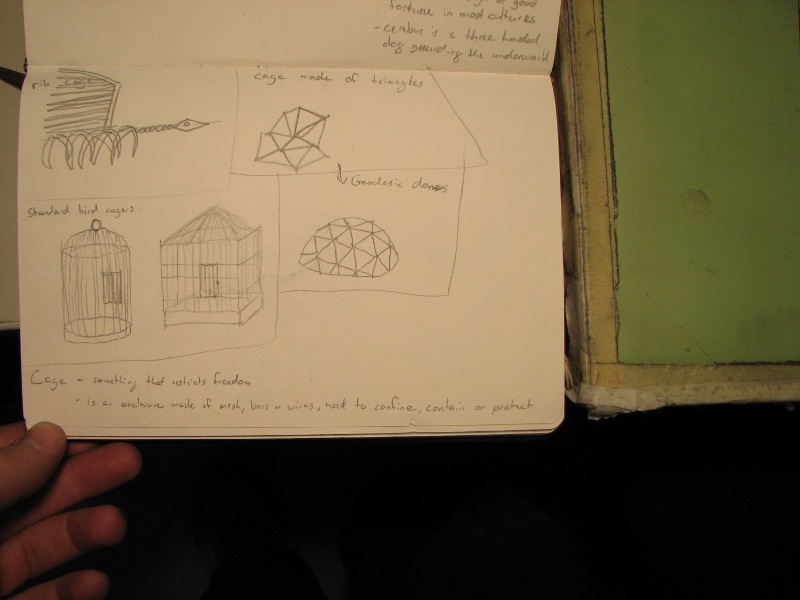 of good
fortune in most cultures
- cerebus is a three headed
dog guarding the underworld
rib cage
cage made of triangles
Geodesic domes
Standard bird cages:
Cage - something that restricts freedom
- is an enclosure made of mesh, bars or wires, used to confine, contain or protect